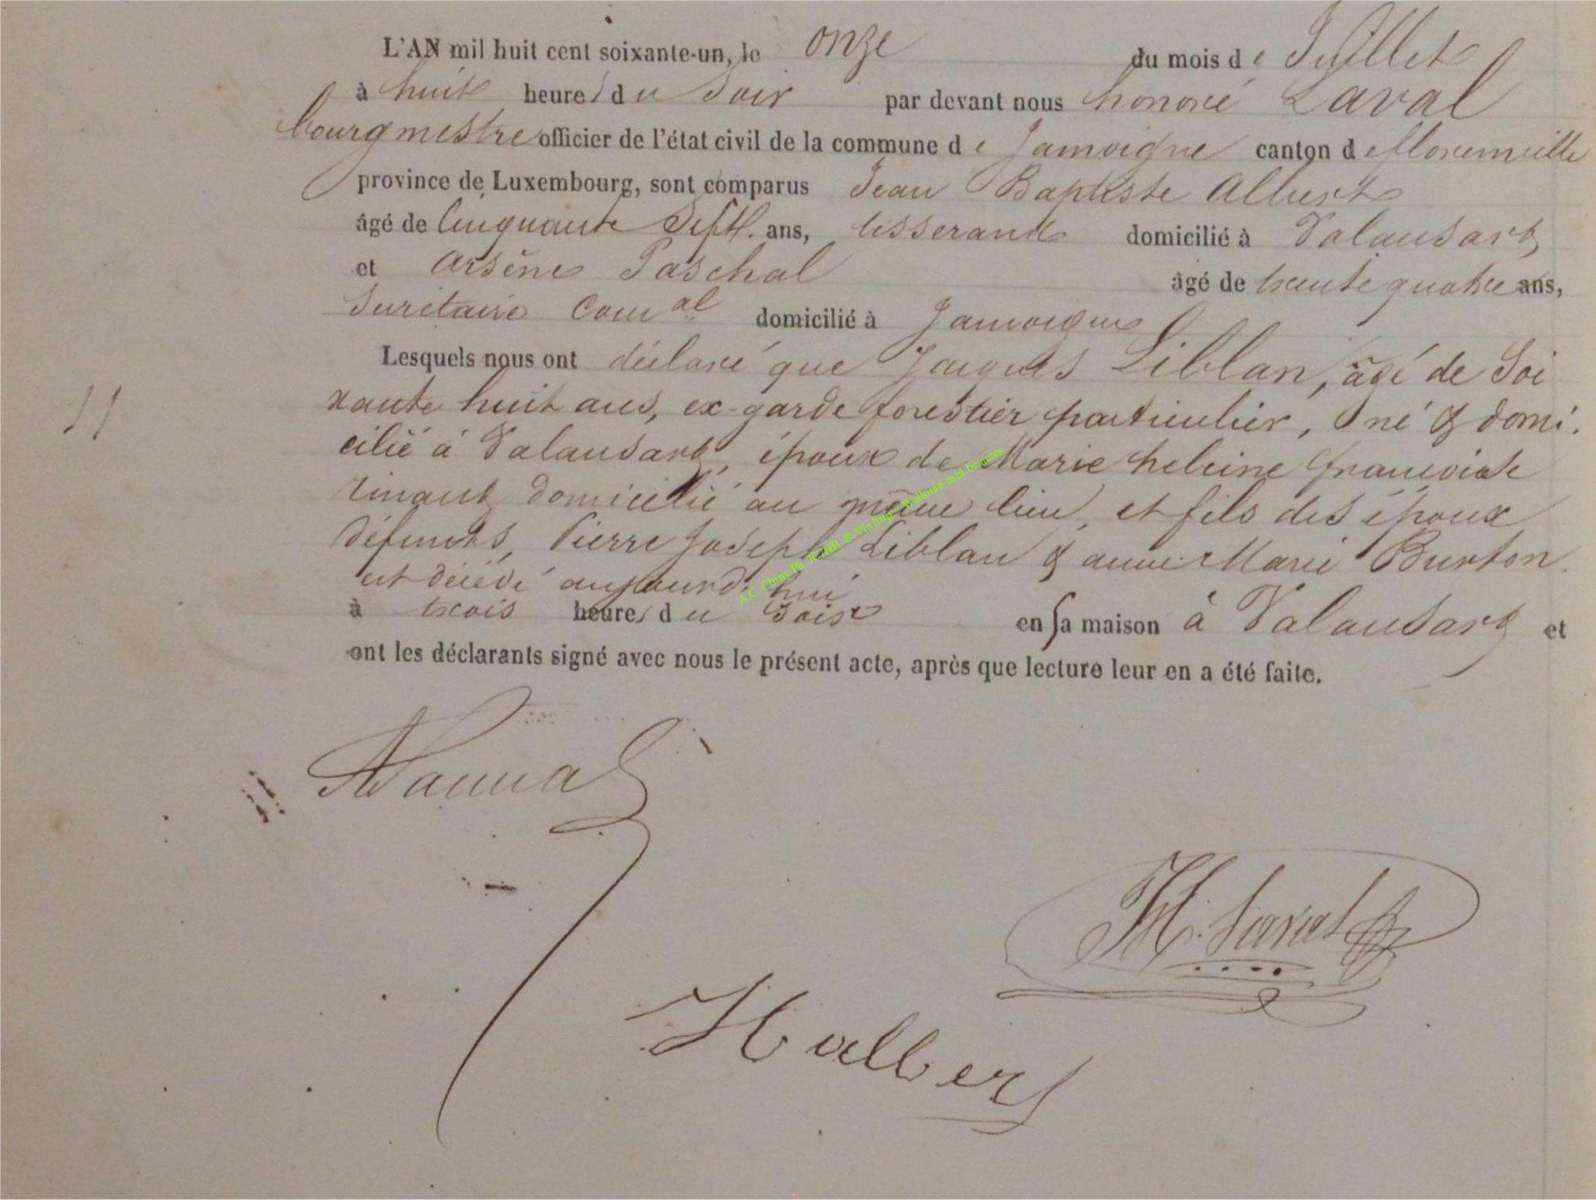 L'AN mil huit cent soixante-un, le onze du mois de Juillet
à huit heures du soir par devant nous honoré Laval
bourgmestre officier de l'état civil de la commune de Jamoigne canton de florenville
province de Luxembourg, sont comparus Jean Baptiste Albert
âgé de Cinquante Sept ans, tisserand domicilié à Valansart
et Arsène Paschal âgé de trente quatre ans,
Secrétaire Com al domicilié à Jamoigne
Lesquels nous ont déclaré que Jacques Liblan, âgé de Soi
xante huit ans, ex-garde forestier particulier, né & domi.
cilié à Valansart, époux de Marie heleine françoise
domicilié au même lieu, et fils des époux
défunts, Pierre Joseph Liblan & anne Marie Burton.
est décédé aujourd'hui
à trois heures du soir en sa maison à Valansart et
ont les déclarants signé avec nous le présent acte, après que lecture leur en a été faite.
11
H. Laval